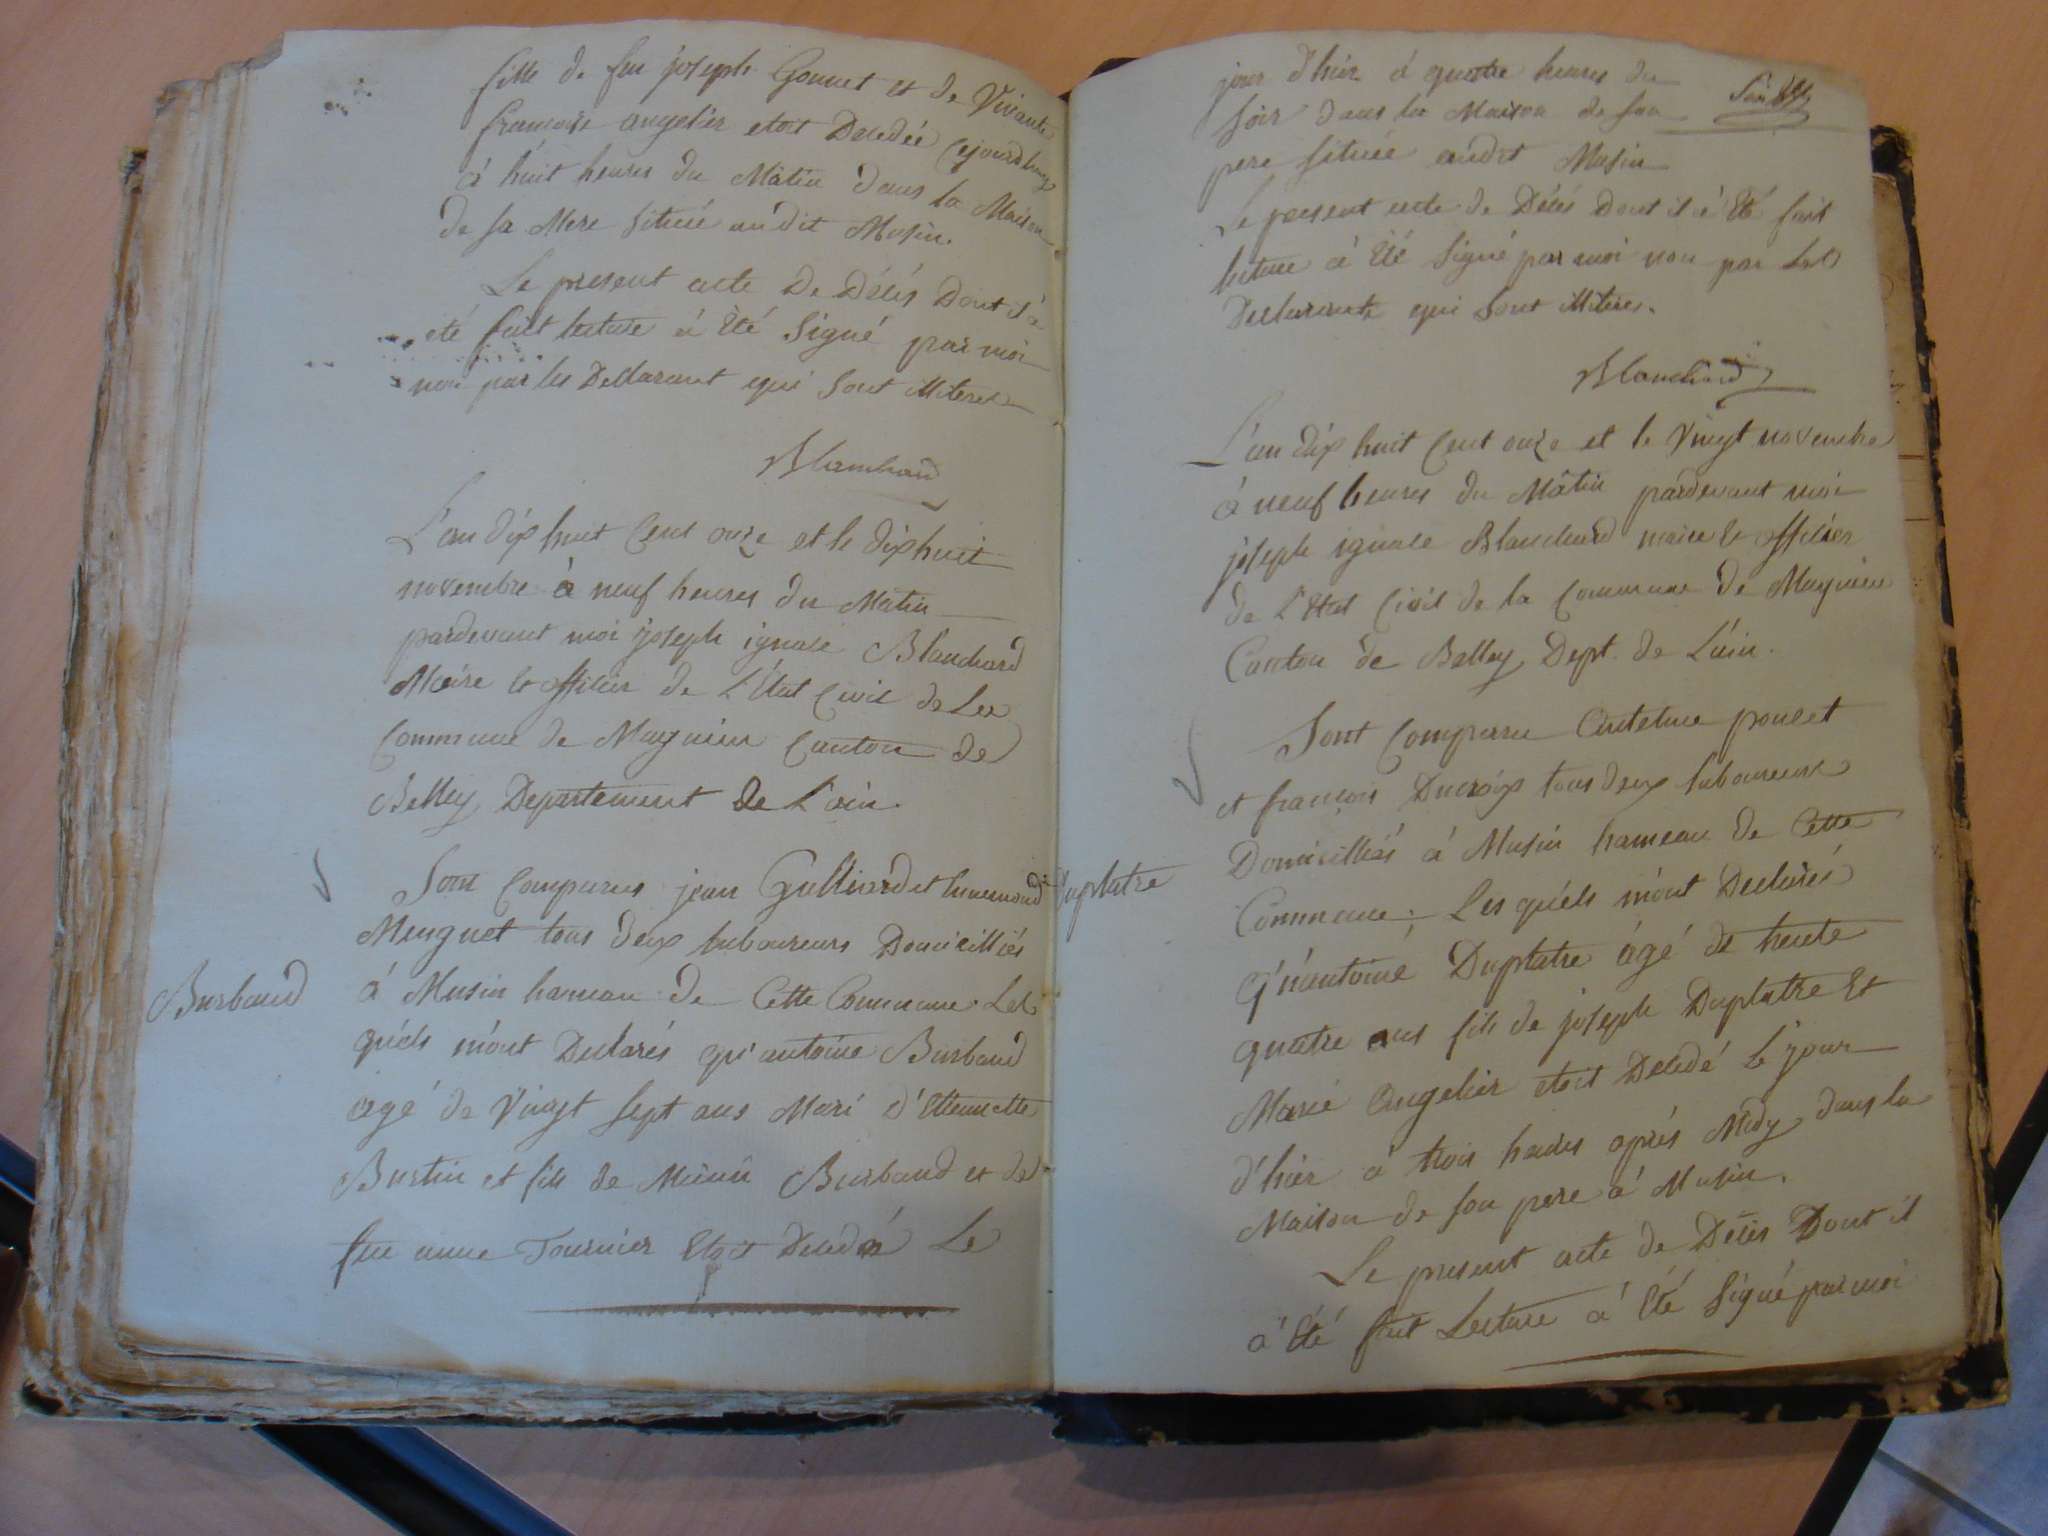 fille de feu joseph Gonnet et de Vivante
francoise angelier etoit Decedée Cejourdhuy
à huit heures du Mâtin dans la Maison
de sa Mere située audit Musin.
Le present acte De Décés Dont il à
eté fait lecture à Eté Signé par moi
non par les Declarant qui Sont illiteres
Blanchard
L'an dix huit Cent onze et le dix huit
novembre à neuf heures du Matin
pardevant moi joseph ignace Blanchard
Maire & officier de L'Etat Civil de La
Commune de Magnieu Canton de
Belley Departement de L'ain.
Sont Comparus jean Gulliard et
Menguet tous deux laboureurs Domicilliés
Burbaud
à Musin hameau de Cette Commune Les
quéls m'ont Declarés qu'antoine Burbaud
agé de Vingt Sept ans Mari d'Etiennette
Burtin et fils de Burbaud et de
feu anne Tournier Etoit Decedé Le
jour d'hier à quatre heures du
Soir dans la Maison de Son
pere située audit Musin
Le present acte de Décés Dont il à Eté fait
lecture à Eté Signé par moi non par Les
Declarants qui Sont illiteres.
Blanchard
L'an dix huit Cent onze et le Vingt novembre
à neuf heures du Mâtin pardevant moi
joseph ignace Blanchard maire & officier
de L'Etat Civil de la Commune de Magnieu
Canton de Belley Dept. de L'ain.
Sont Comparu Antelme poncet
et françois Ducroix tous deux laboureurs
Duplatre
Domicilliés à Musin hameau de Cette
Commune; Les quéls m'ont Declarés
Qu'antoine Duplatre âgé de trente
quatre ans fils de joseph Duplatre Et
Marie Angelier etoit Decedé Le jour
d'hier à trois heures aprés Midy dans la
Maison de son pere à Musin.
Le present acte de Décés Dont il
à Eté fait Lecture à Eté Signé par moi